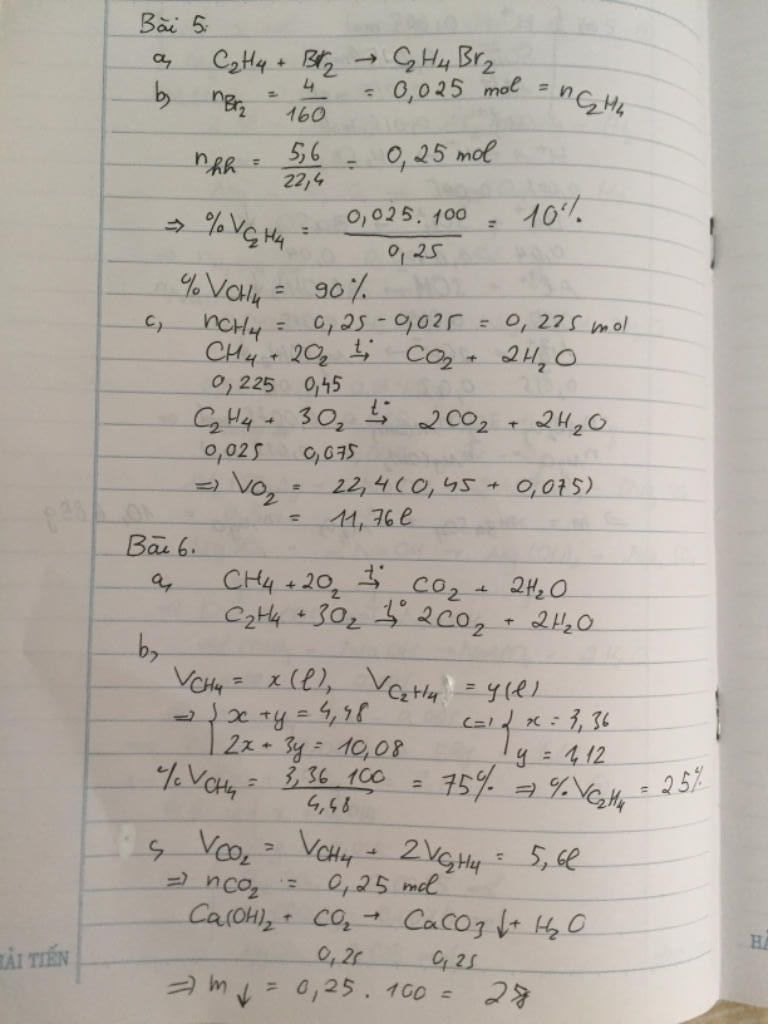 Bài 5:
a, C2H4 + Br2 → C2H4Br2
b) nBr2 = 4/160 = 0,025 mol = nC2H4
nhh = 5,6/22,4 = 0,25 mol
⇒ %VC2H4 = 0,025.100/0,25 = 10%
%VCH4 = 90%
c, nCH4 = 0,25 - 0,025 = 0,225 mol
CH4 + 2O2 t°→ CO2 + 2H2O
0,225 0,45
C2H4 + 3O2 t°→ 2CO2 + 2H2O
0,025 0,075
⇒ VO2 = 22,4(0,45 + 0,075)
= 11,76l
Bài 6.
a, CH4 + 2O2 t°→ CO2 + 2H2O
C2H4 + 3O2 t°→ 2CO2 + 2H2O
b,
VCH4 = x(l), VC2H4 = y(l)
⇒ { x + y = 4,48 <=> { x = 3,36
2x + 3y = 10,08 y = 1,12
%VCH4 = 3,36.100/4,48 = 75% ⇒ %VC2H4 = 25%
c, VCO2 = VCH4 + 2VC2H4 = 5,6l
⇒ nCO2 = 0,25 mol
Ca(OH)2 + CO2 → CaCO3↓ + H2O
0,25 0,25
⇒ m↓ = 0,25.100 = 25g
HẢI TIẾN